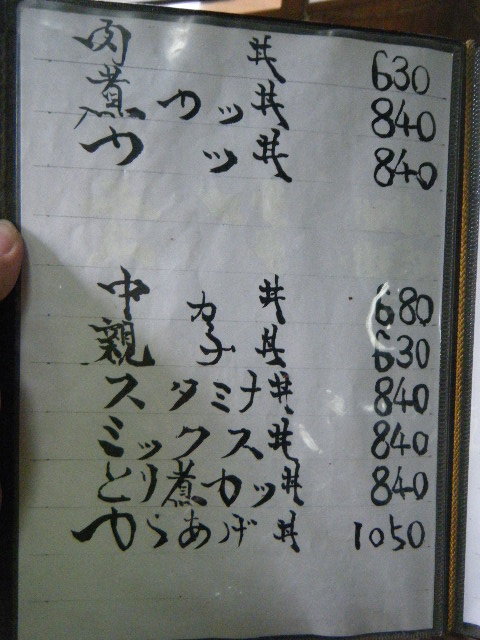 肉丼 630
煮カツ丼 840
カツ丼 840
中華丼 680
親子丼 630
スタミナ丼 840
ミックス丼 840
とり煮カツ丼 840
からあげ丼 1050